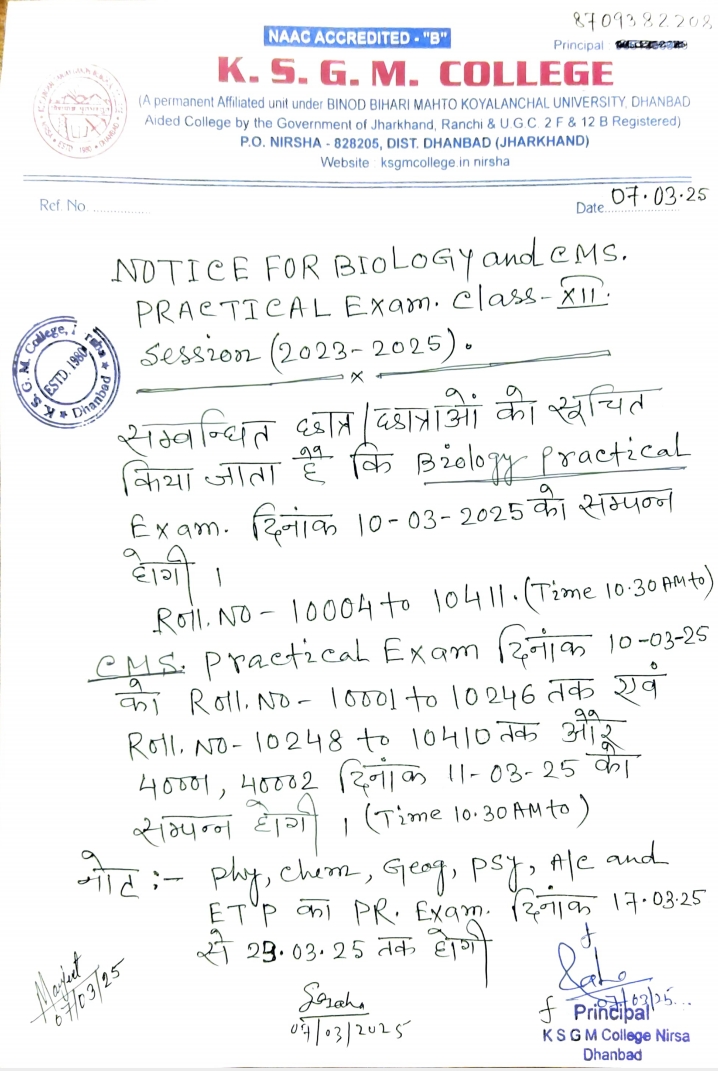 8709382208
NAAC ACCREDITED - "B"
Principal
K. S. G. M. COLLEGE
(A permanent Affiliated unit under BINOD BIHARI MAHTO KOYALANCHAL UNIVERSITY, DHANBAD
Aided College by the Government of Jharkhand, Ranchi & U.G.C. 2 F & 12 B Registered)
P.O. NIRSHA - 828205, DIST. DHANBAD (JHARKHAND)
Website : ksgmcollege.in nirsha
Ref. No. ..............
Date 07.03.25
NOTICE FOR BIOLOGY and CMS.
PRACTICAL Exam. Class-XII.
Session (2023-2025).
K. S. G. M. College, Nirsha
ESTD. 1980
Dhanbad
सम्बन्धित छात्र/छात्राओं को सूचित
किया जाता है कि Biology Practical
Exam. दिनांक 10-03-2025 को सम्पन्न
होगी ।
Roll. No - 10004 to 10411. (Time 10.30 AM to)
CMS. Practical Exam दिनांक 10-03-25
को Roll. No - 10001 to 10246 तक एवं
Roll. No - 10248 to 10410 तक और
40001, 40002 दिनांक 11-03-25 को
सम्पन्न होगी । (Time 10.30 AM to)
नोट :- Phy, Chem, Geog, PSY, A/c and
ETP का PR. Exam. दिनांक 17.03.25
से 23.03.25 तक होगी
07/03/25
07/03/2025
07/03/25
Principal
K S G M College Nirsa
Dhanbad